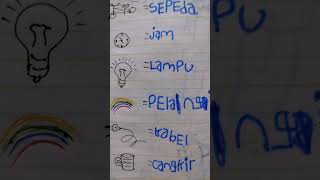 =SEPEda
=Jam
=LamPU
=PElangi
=KabEl
=cangkir